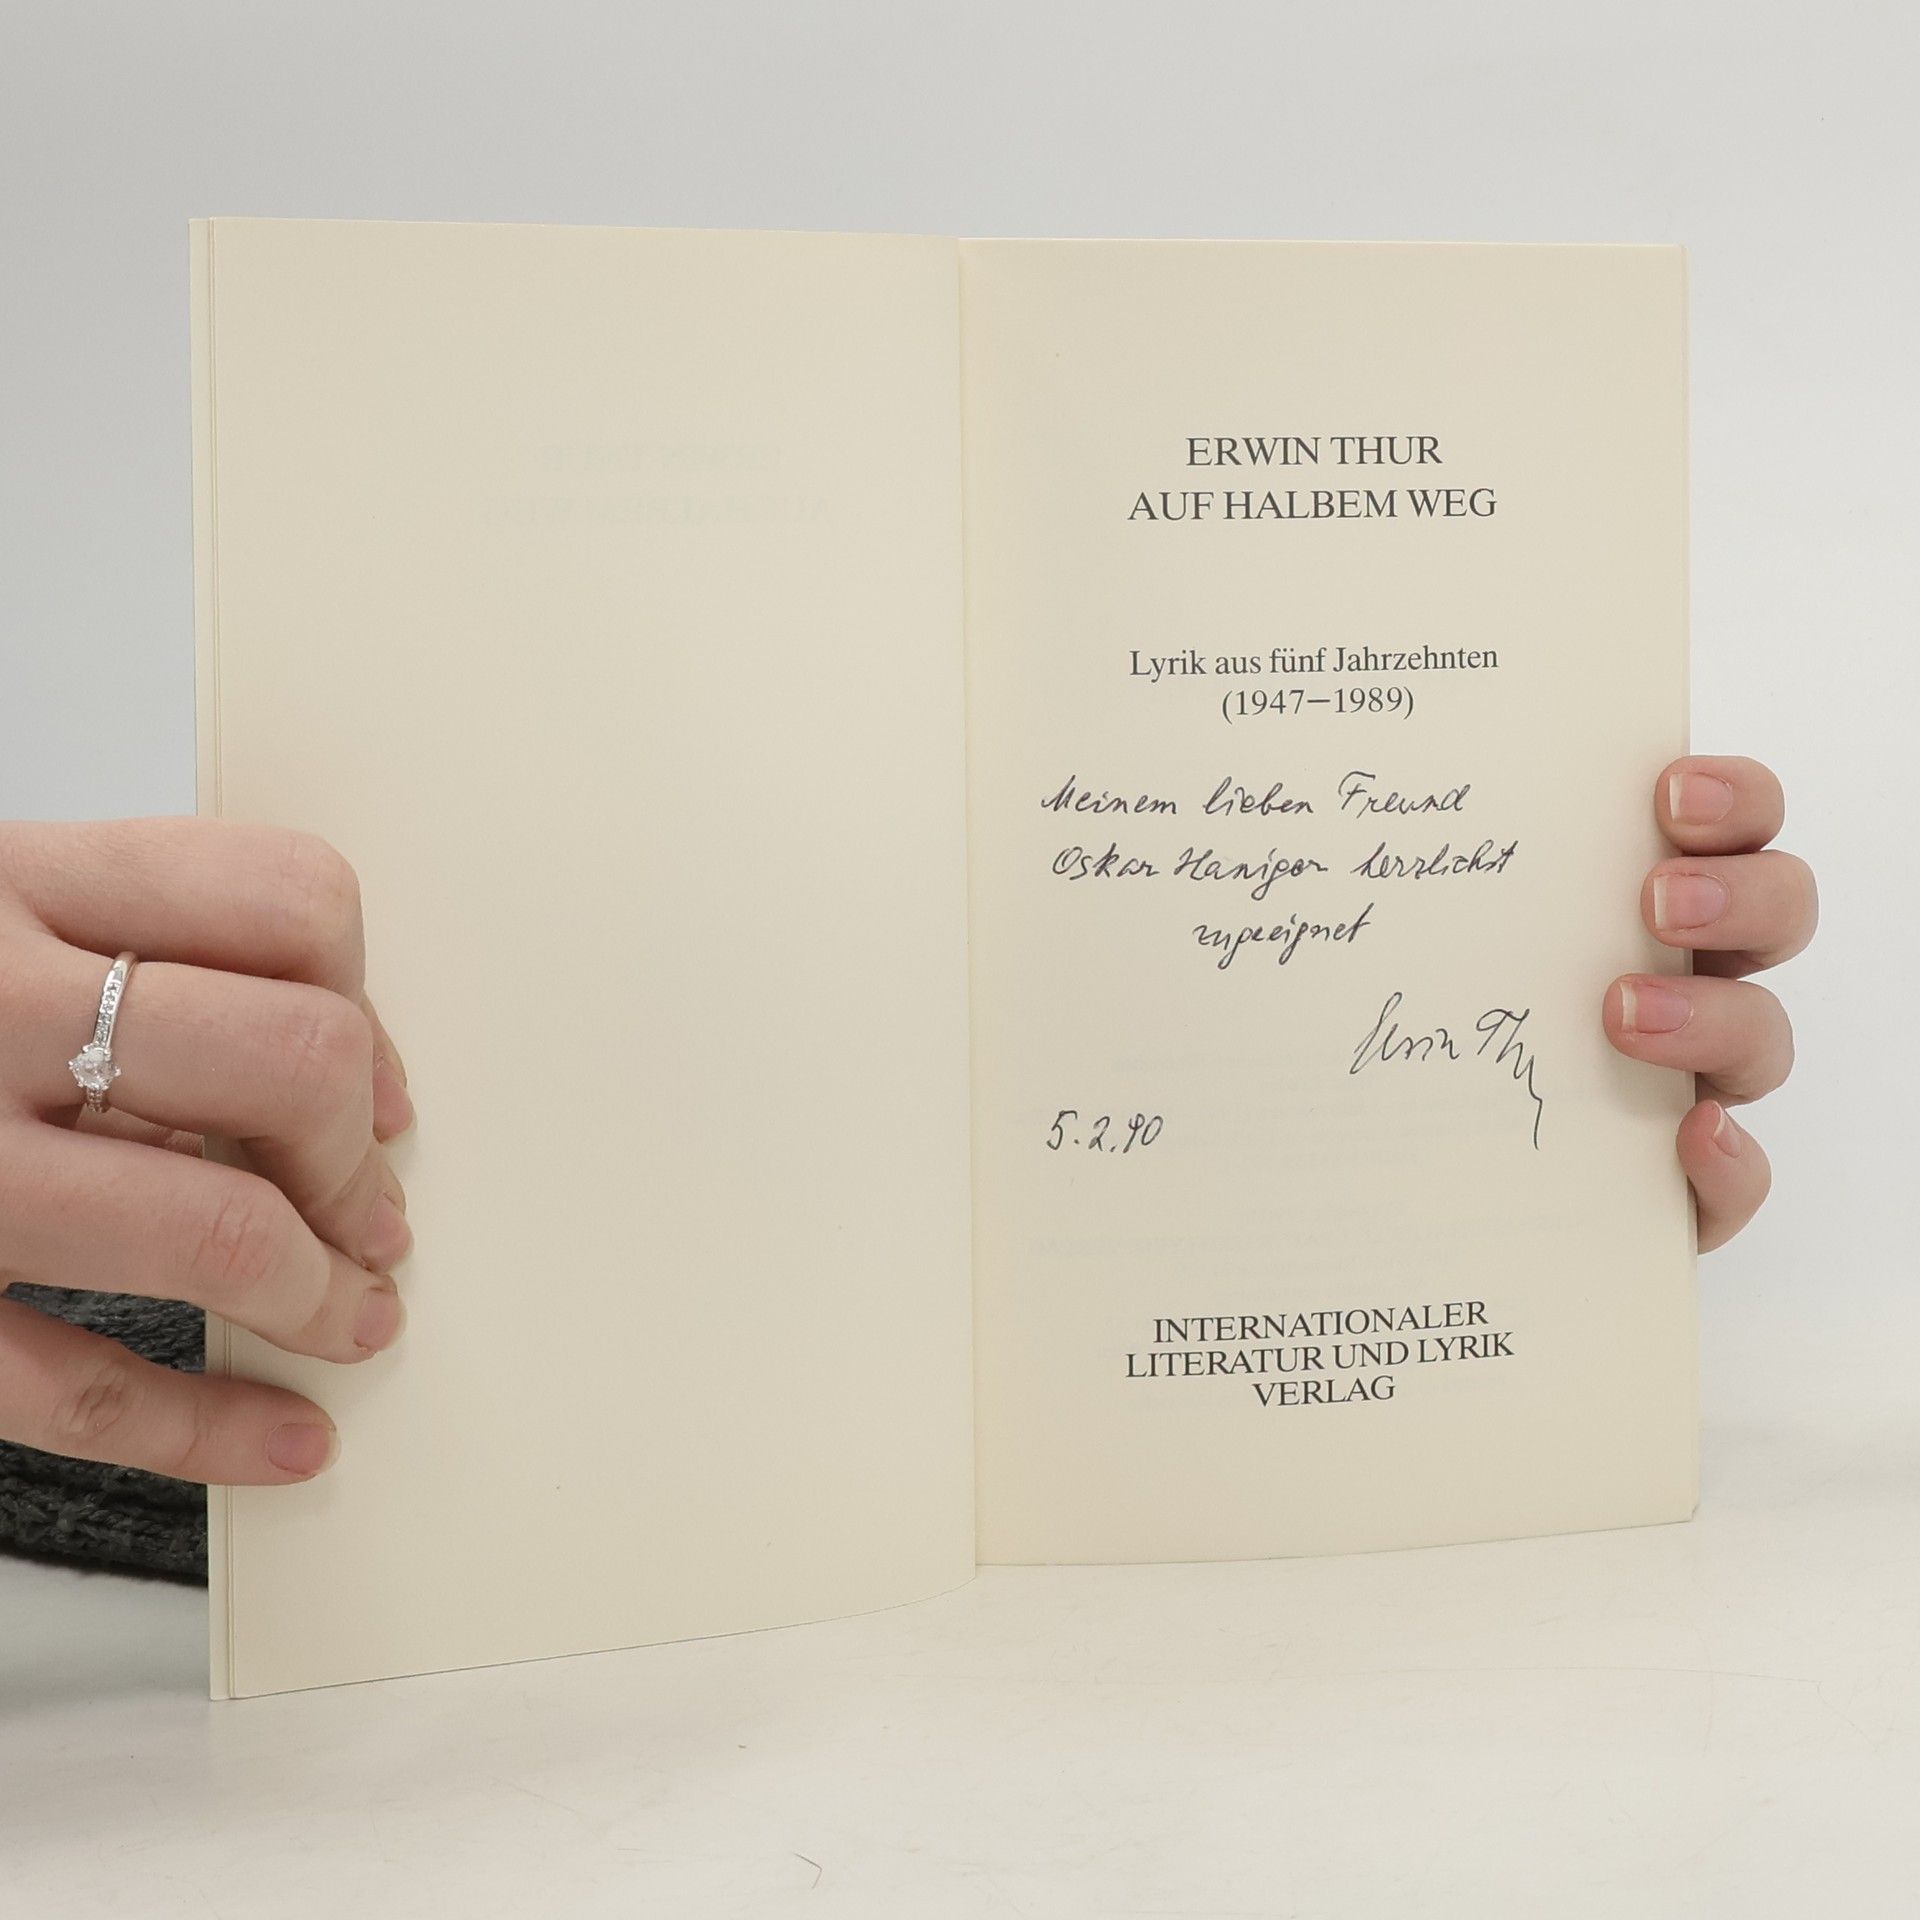 ERWIN THUR
AUF HALBEM WEG
Lyrik aus fünf Jahrzehnten
(1947–1989)
Meinem lieben Freund
Oskar Haniger herzlichst
zugeeignet
Erwin Thur
5.2.90
INTERNATIONALER
LITERATUR UND LYRIK
VERLAG